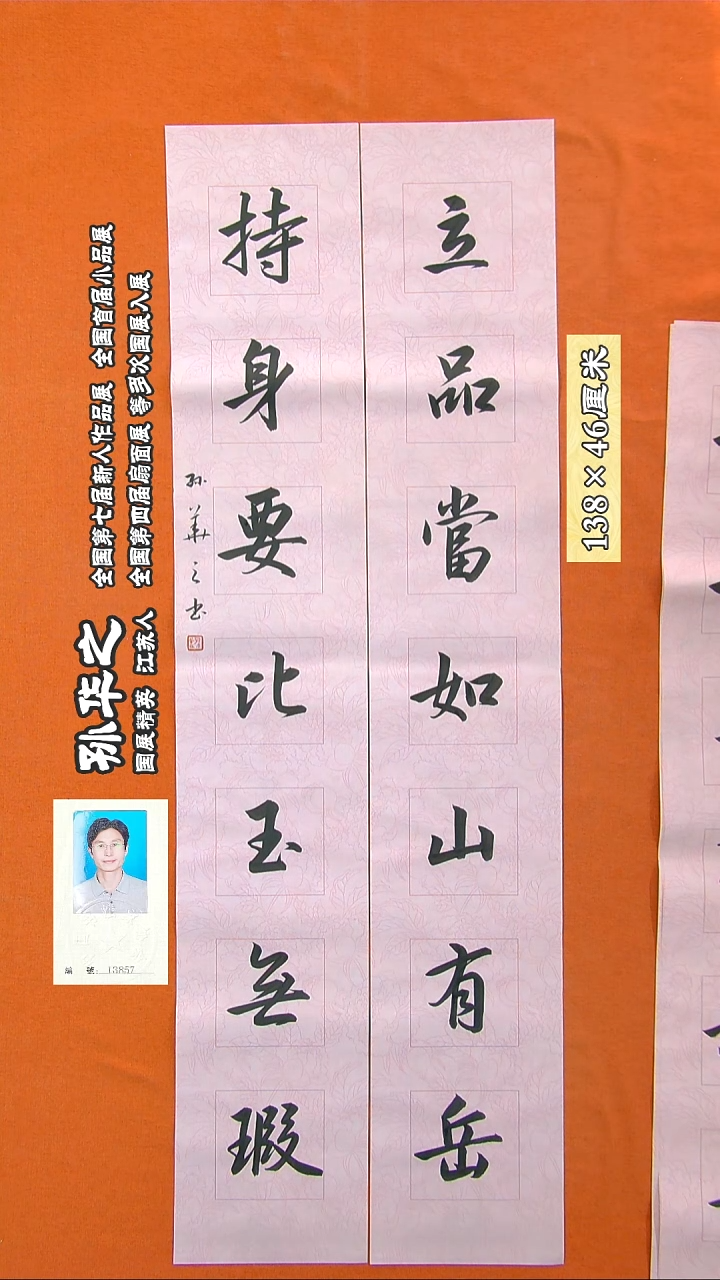 立品當如山有岳
持身要比玉無瑕
孙華之书
138×46厘米
孙华之
国展精英 江苏人
全国第七届新人作品展 全国首届小品展
全国第四届扇面展 等多次国展入展
編 號: 13857